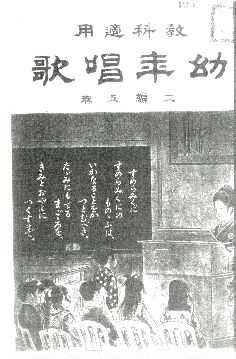 教科適用
幼年唱歌
二編
すめらみくに
すめらみくにの
ものゝふは、
いかなることをか
つとむべき。
たゞみにもてる
まごころを、
きみとおやとに
つくすまで。